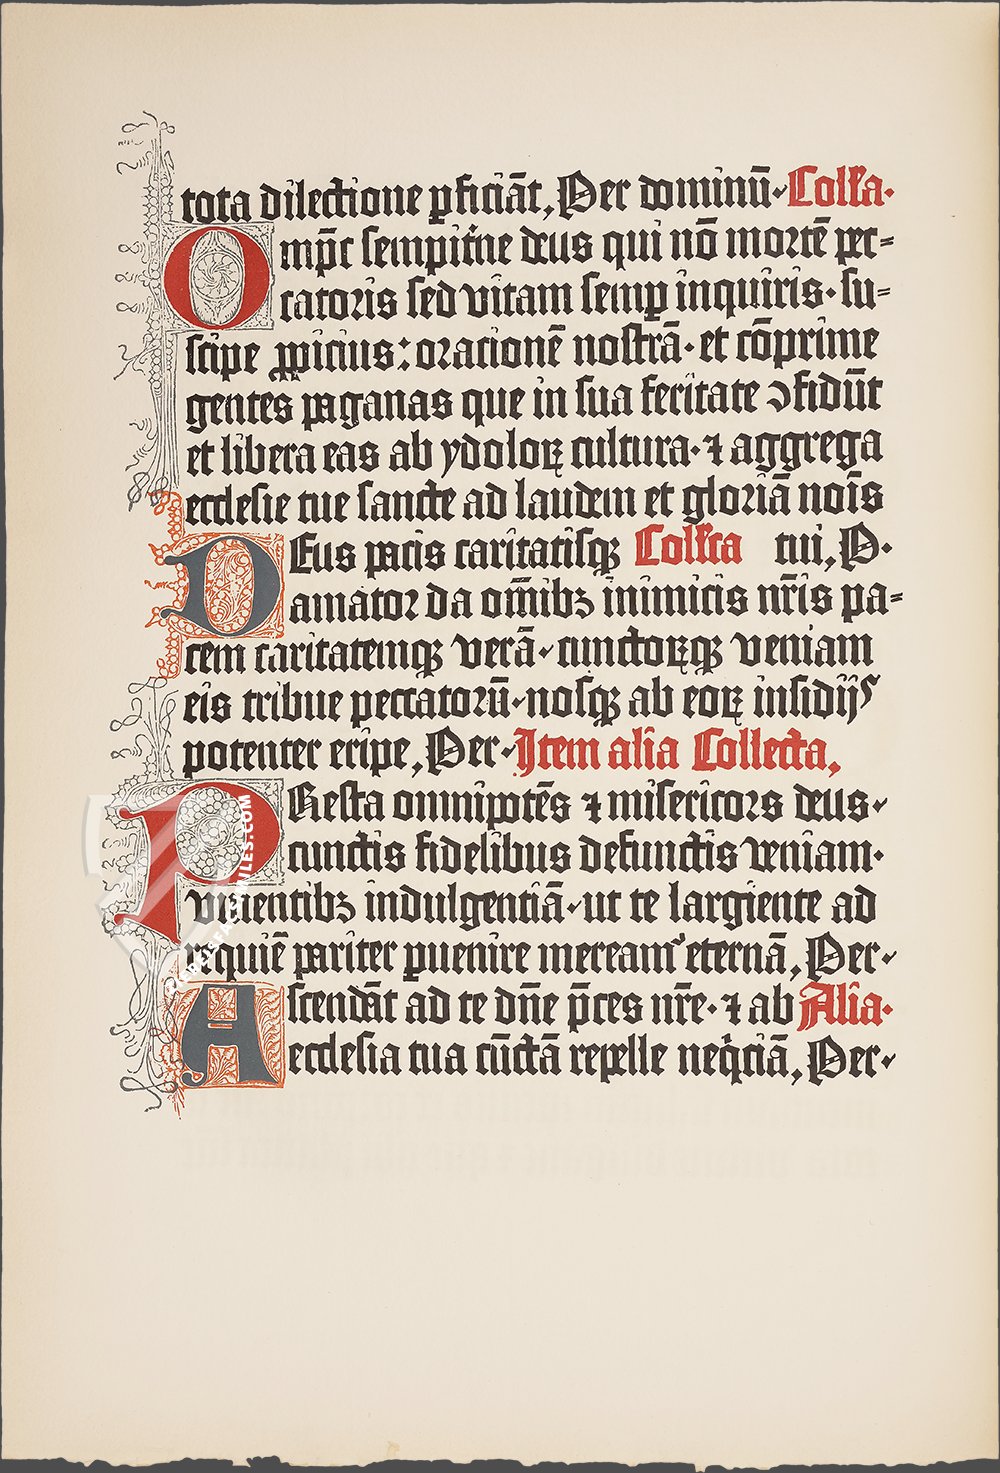 tota dilectione ꝑficiāt, Per dominū· Coll'a·
Omp̄c sempit'ne deus qui nō mortē pec=
catoris sed vitam semꝑ inquiris· su=
scipe ꝓpicius: oracionē nostrā· et cōprime
gentes paganas que in sua feritate ꝯfidūt
et libera eas ab ydoloꝝ cultura· ⁊ aggrega
ecclesie tue sancte ad laudem et gloriā nois̄
DEus pacis caritatisqꝫ Coll'cta tui, P·
amator da om̄ibꝫ inimicis nr̄is pa=
cem caritatemqꝫ verā· cunctoꝝqꝫ veniam
eis tribue peccatorū· nosqꝫ ab eoꝝ insidijs
potenter eripe, Per· Item alia Collecta,
PResta omnipotēs ⁊ misericors deus·
cunctis fidelibus defunctis veniam·
viuentibꝫ indulgentiā· ut te largiente ad
requiē pariter ꝑuenire mereamʳ eternā, Per·
Ascendāt ad te dn̄e p̄ces nr̄e· ⁊ ab Alia·
ecclesia tua cūctā repelle neqͥciā, Per·
FACSIMILES.COM